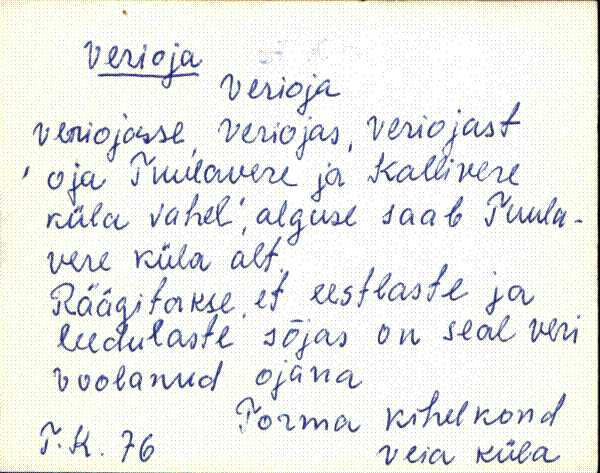 verioja
verioja
veriojasse, veriojas, veriojast
'oja Tuulavere ja Kallivere
küla vahel', alguse saab Tuula-
vere küla alt.
Räägitakse, et eestlaste ja
leedulaste sõjas on seal veri
voolanud ojana
Torma kihelkond
T.K. 76 veia küla